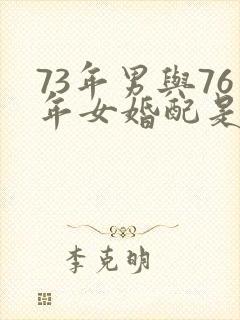 73年男與76
年女婚配是
李克明